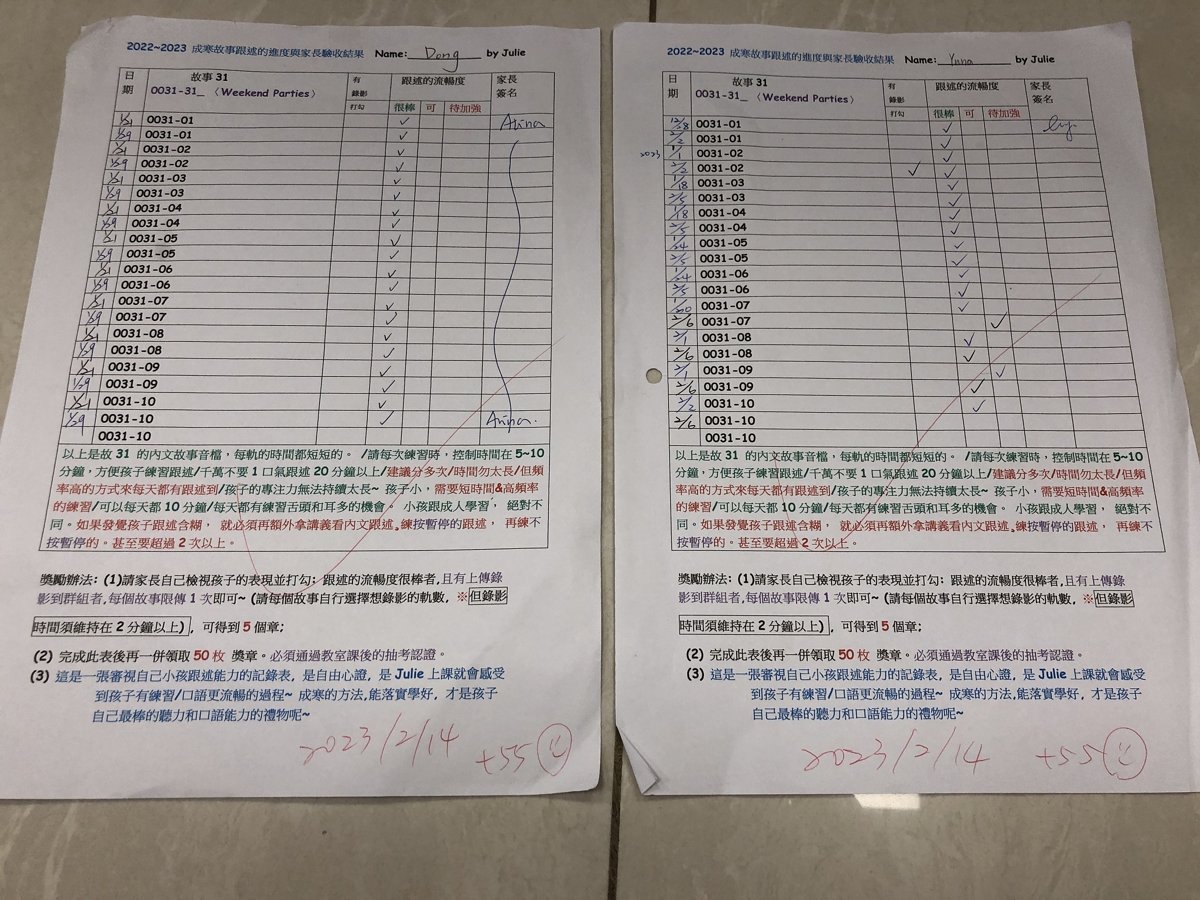 2022~2023 成寒故事跟述的進度與家長驗收結果 Name: Dong by Julie
日期 故事 31 有錄影打勾 跟述的流暢度 家長簽名
0031-31_ (Weekend Parties) 很棒 可 待加強
1/21 0031-01 ✓ Anna
1/29 0031-01 ✓
1/21 0031-02 ✓
1/29 0031-02 ✓
1/21 0031-03 ✓
1/29 0031-03 ✓
1/21 0031-04 ✓
1/29 0031-04 ✓
1/21 0031-05 ✓
1/29 0031-05 ✓
1/21 0031-06 ✓
1/29 0031-06 ✓
1/21 0031-07 ✓
1/29 0031-07 ✓
1/21 0031-08 ✓
1/29 0031-08 ✓
1/21 0031-09 ✓
1/29 0031-09 ✓
1/21 0031-10 ✓
1/29 0031-10 ✓ Anna.
0031-10
以上是故 31 的內文故事音檔，每軌的時間都短短的。 /請每次練習時，控制時間在 5~10
分鐘，方便孩子練習跟述/千萬不要 1 口氣跟述 20 分鐘以上/建議分多次/時間勿太長/但頻
率高的方式來每天都有跟述到/孩子的專注力無法持續太長~ 孩子小，需要短時間&高頻率
的練習/可以每天都 10 分鐘/每天都有練習舌頭和耳多的機會。 小孩跟成人學習， 絕對不
同。如果發覺孩子跟述含糊， 就必須再額外拿講義看內文跟述。練按暫停的跟述， 再練不
按暫停的。甚至要超過 2 次以上。
獎勵辦法: (1)請家長自己檢視孩子的表現並打勾; 跟述的流暢度很棒者,且有上傳錄
影到群組者,每個故事限傳 1 次即可~ (請每個故事自行選擇想錄影的軌數, ※但錄影
時間須維持在 2 分鐘以上), 可得到 5 個章;
(2) 完成此表後再一併領取 50 枚 獎章。必須通過教室課後的抽考認證。
(3) 這是一張審視自己小孩跟述能力的記錄表, 是自由心證, 是 Julie 上課就會感受
到孩子有練習/口語更流暢的過程~ 成寒的方法,能落實學好, 才是孩子
自己最棒的聽力和口語能力的禮物呢~
2023/2/14 +55
2022~2023 成寒故事跟述的進度與家長驗收結果 Name: Ynna by Julie
日期 故事 31 有錄影打勾 跟述的流暢度 家長簽名
0031-31_ (Weekend Parties) 很棒 可 待加強
12/28 0031-01 ✓
2/2 0031-01 ✓
2023 1/1 0031-02 ✓
2/2 0031-02 ✓ ✓
1/18 0031-03 ✓
2/5 0031-03 ✓
1/18 0031-04 ✓
2/5 0031-04 ✓
1/24 0031-05 ✓
2/5 0031-05 ✓
1/24 0031-06 ✓
2/5 0031-06 ✓
1/30 0031-07 ✓
2/6 0031-07 ✓
2/1 0031-08 ✓
2/6 0031-08 ✓
2/1 0031-09 ✓
2/6 0031-09 ✓
2/2 0031-10 ✓
2/6 0031-10
0031-10
以上是故 31 的內文故事音檔，每軌的時間都短短的。 /請每次練習時，控制時間在 5~10
分鐘，方便孩子練習跟述/千萬不要 1 口氣跟述 20 分鐘以上/建議分多次/時間勿太長/但頻
率高的方式來每天都有跟述到/孩子的專注力無法持續太長~ 孩子小，需要短時間&高頻率
的練習/可以每天都 10 分鐘/每天都有練習舌頭和耳多的機會。 小孩跟成人學習， 絕對不
同。如果發覺孩子跟述含糊， 就必須再額外拿講義看內文跟述。練按暫停的跟述， 再練不
按暫停的。甚至要超過 2 次以上。
獎勵辦法: (1)請家長自己檢視孩子的表現並打勾; 跟述的流暢度很棒者,且有上傳錄
影到群組者,每個故事限傳 1 次即可~ (請每個故事自行選擇想錄影的軌數, ※但錄影
時間須維持在 2 分鐘以上), 可得到 5 個章;
(2) 完成此表後再一併領取 50 枚 獎章。必須通過教室課後的抽考認證。
(3) 這是一張審視自己小孩跟述能力的記錄表, 是自由心證, 是 Julie 上課就會感受
到孩子有練習/口語更流暢的過程~ 成寒的方法,能落實學好, 才是孩子
自己最棒的聽力和口語能力的禮物呢~
2023/2/14 +55